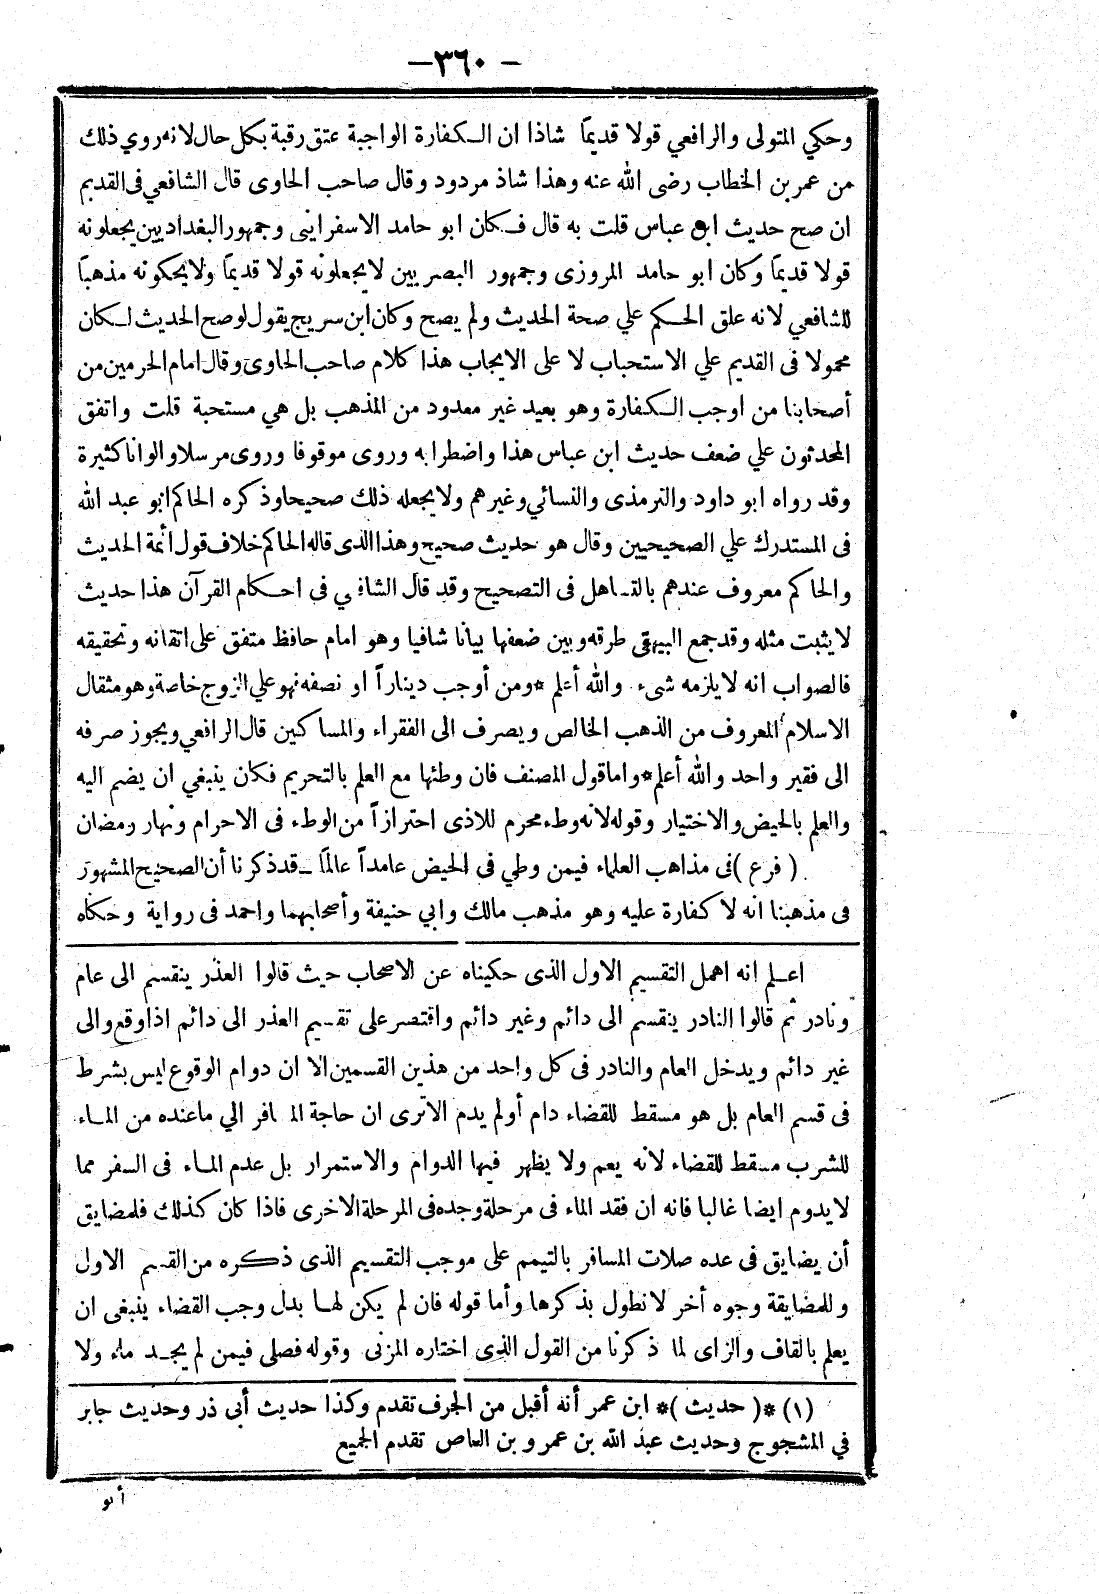 — ٣٦٠ —
وحكي المتولى والرافعي قولا قديماً شاذا ان الـكفارة الواجبة عتق رقبة بكل حال لانه روي ذلك
عن عمر بن الخطاب رضى الله عنه وهذا شاذ مردود وقال صاحب الحاوى قال الشافعي فى القديم
ان صح حديث ابن عباس قلت به قال فـكان ابو حامد الاسفراينى وجمهور البغداديين يجعلونه
قولا قديماً وكان ابو حامد المروزى وجمهور البصريين لا يجعلونه قولا قديماً ولا يحكونه مذهباً
للشافعي لانه علق الحـكم علي صحة الحديث ولم يصح وكان ابن سريج يقول لو صح الحديث لـكان
محمولا فى القديم علي الاستحباب لا على الايجاب هذا كلام صاحب الحاوى وقال امام الحرمين من
أصحابنا من اوجب الـكفارة وهو بعيد غير معدود من المذهب بل هي مستحبة قلت واتفق
المحدثون علي ضعف حديث ابن عباس هذا واضطرابه وروى موقوفا وروى مرسلا والوانا كثيرة
وقد رواه ابو داود والترمذى والنسائي وغيرهم ولا يجعله ذلك صحيحا وذكره الحاكم ابو عبد الله
فى المستدرك علي الصحيحيين وقال هو حديث صحيح وهذا الذى قاله الحاكم خلاف قول أئمة الحديث
والحاكم معروف عندهم بالتساهل فى التصحيح وقد قال الشافعي فى احـكام القرآن هذا حديث
لا يثبت مثله وقد جمع البيهقى طرقه وبين ضعفها بيانا شافيا وهو امام حافظ متفق على اتقانه وتحقيقه
فالصواب انه لا يلزمه شىء والله أعلم * ومن أوجب ديناراً او نصفه فهو علي الزوج خاصة وهو مثقال
الاسلام المعروف من الذهب الخالص ويصرف الى الفقراء والمساكين قال الرافعي ويجوز صرفه
الى فقير واحد والله أعلم * واما قول المصنف فان وطئها مع العلم بالتحريم فكان ينبغي ان يضم اليه
والعلم بالحيض والاختيار وقوله لانه وطء محرم للاذى احترازاً من الوطء فى الاحرام ونهار رمضان
( فرع ) فى مذاهب العلماء فيمن وطي فى الحيض عامداً عالماً ـ قد ذكرنا أن الصحيح المشهور
فى مذهبنا انه لا كفارة عليه وهو مذهب مالك وابي حنيفة وأصحابهما واحمد فى رواية وحكاه
اعـلم انه اهمل التقسيم الاول الذى حكيناه عن الاصحاب حيث قالوا العذر ينقسم الى عام
ونادر ثم قالوا النادر ينقسم الى دائم وغير دائم واقتصر على تقسيم العذر الى دائم اذا وقع والى
غير دائم ويدخل العام والنادر فى كل واحد من هذين القسمين الا ان دوام الوقوع ليس بشرط
فى قسم العام بل هو مسقط للقضاء دام أو لم يدم الاترى ان حاجة المسافر الي ما عنده من المـاء
للشرب مسقط للقضاء لانه يعم ولا يظهر فيها الدوام والاستمرار بل عدم المـاء فى السفر مما
لا يدوم ايضا غالبا فانه ان فقد الماء فى مرحلة وجده فى المرحلة الاخرى فاذا كان كذلك فلمضايق
أن يضايق فى عده صلات المسافر بالتيمم على موجب التقسيم الذى ذكره من القسم الاول
وللمضايقة وجوه أخر لا نطول بذكرها وأما قوله فان لم يكن لهـا بدل وجب القضاء ينبغى ان
يعلم بالقاف والزاى لما ذكرنا من القول الذى اختاره المزنى وقوله فصلى فيمن لم يجـد ماء ولا
(١) *( حديث )* ابن عمر أنه أقبل من الجرف تقدم وكذا حديث أبى ذر وحديث جابر
في المشجوج وحديث عبد الله بن عمرو بن العاص تقدم الجميع
أبو